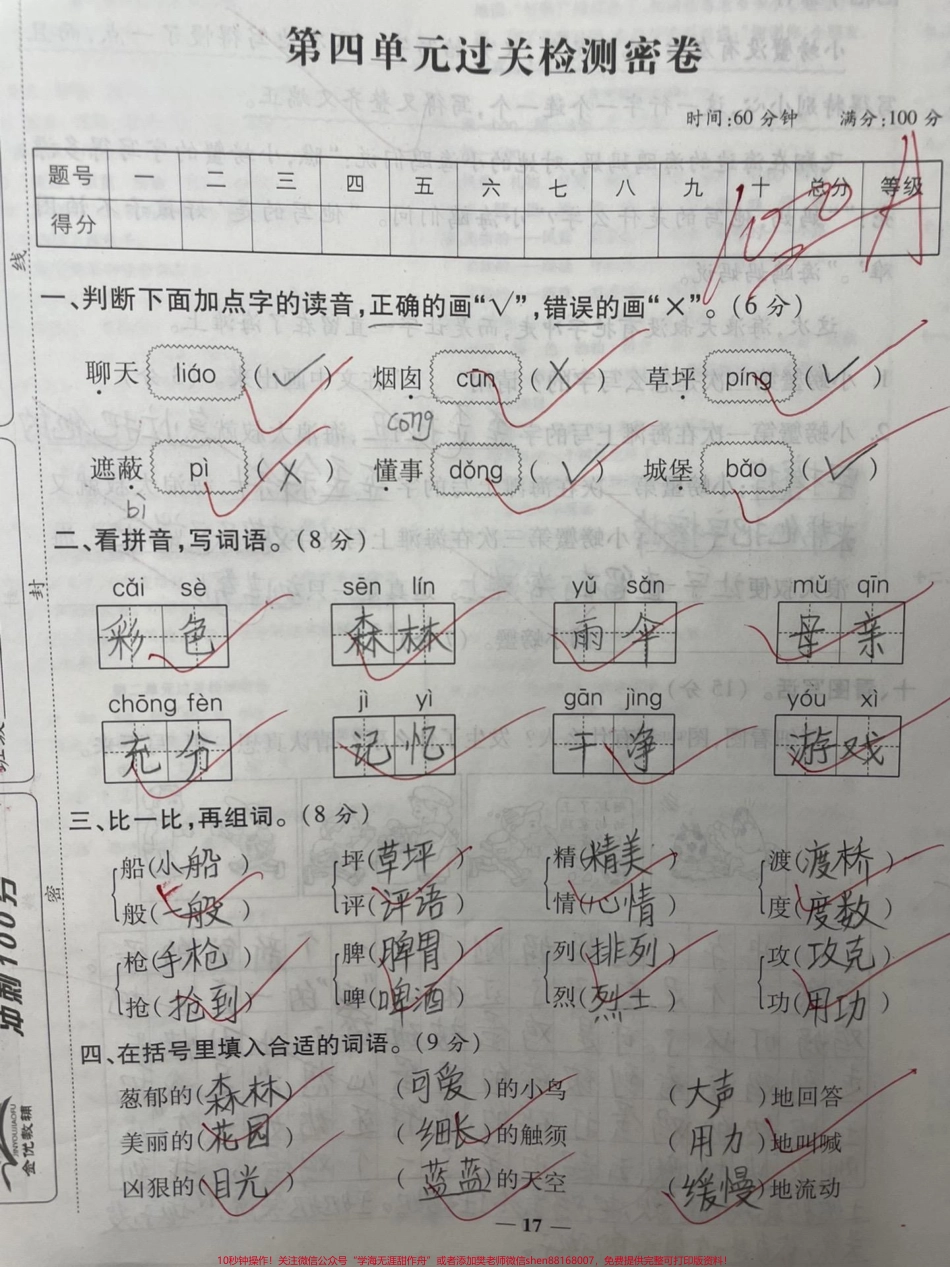 第四单元过关检测密卷
时间:60分钟 满分:100分
题号 一 二 三 四 五 六 七 八 九 十 总分 等级
得分
A
一、判断下面加点字的读音,正确的画“√”,错误的画“×”。(6分)
聊天 liáo (√) 烟囱 cūn (×) 草坪 píng (√)
cong
遮蔽 pì (×) 懂事 dǒng (√) 城堡 bǎo (√)
bì
二、看拼音,写词语。(8分)
cǎi sè sēn lín yǔ sǎn mǔ qīn
彩色 森林 雨伞 母亲
chōng fèn jì yì gān jìng yóu xì
充分 记忆 干净 游戏
三、比一比,再组词。(8分)
船(小船) 坪(草坪) 精(精美) 渡(渡桥)
般(一般) 评(评语) 情(心情) 度(度数)
枪(手枪) 脾(脾胃) 列(排列) 攻(攻克)
抢(抢到) 啤(啤酒) 烈(烈士) 功(用功)
四、在括号里填入合适的词语。(9分)
葱郁的(森林) (可爱)的小鸟 (大声)地回答
美丽的(花园) (细长)的触须 (用力)地叫喊
凶狠的(目光) (蓝蓝)的天空 (缓慢)地流动
— 17 —
线
封
密
冲刺100分
金优教辅
JINYOUJIAOFU
10秒钟操作!关注微信公众号“学海无涯甜作舟”或者添加樊老师微信shen88168007,免费提供完整可打印版资料!